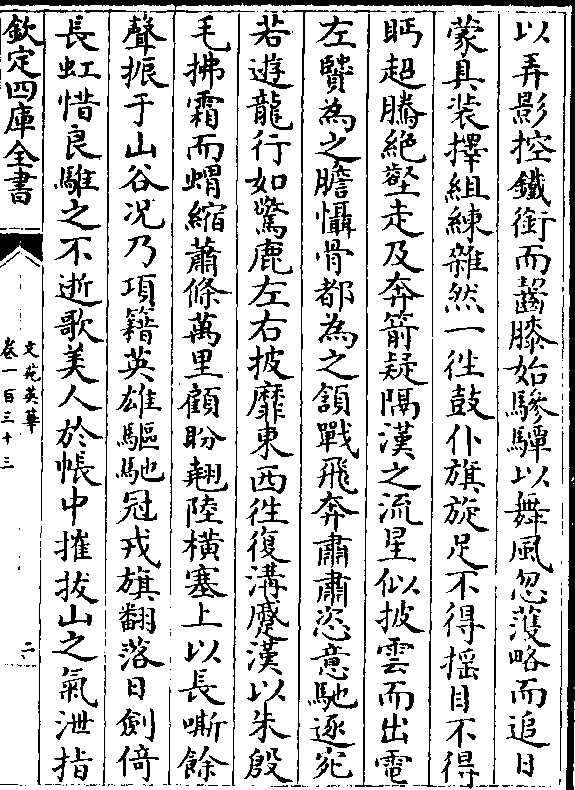 以弄影控鐵銜而齧膝始驂驔以舞風忽蒦略而追日
蒙具裝擇組練雜然一徃鼓仆旗旋足不得揺目不得
眄超騰絶壑走及奔箭疑隔漢之流星似披雲而出電
左賢為之膽懾骨都為之頷戰飛奔肅肅恣意馳逐宛
若遊龍行如驚鹿左右披靡東西徃復溝蹙漢以朱殷
毛拂霜而蝟縮蕭條萬里顧盼翹陸橫塞上以長嘶餘
聲振于山谷况乃項籍英雄驅馳冠戎旗翻落日劍倚
長虹惜良騅之不逝歌美人於帳中摧拔山之氣泄指
欽定四庫全書
文苑英華
卷一百三十三
二